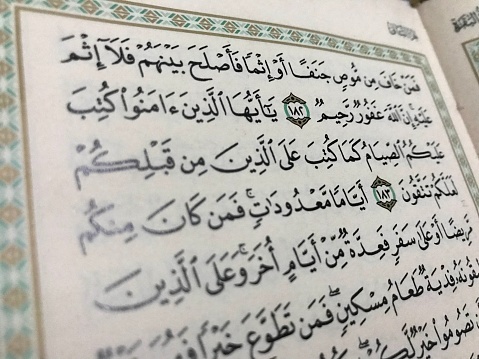 فَمَنْ خَافَ مِن مُّوصٍ جَنَفًا أَوْ إِثْمًا فَأَصْلَحَ بَيْنَهُمْ فَلَآ إِثْمَ
عَلَيْهِ إِنَّ ٱللَّهَ غَفُورٌ رَّحِيمٌ ١٨٢ يَٰٓأَيُّهَا ٱلَّذِينَ ءَامَنُوا۟ كُتِبَ
عَلَيْكُمُ ٱلصِّيَامُ كَمَا كُتِبَ عَلَى ٱلَّذِينَ مِن قَبْلِكُمْ
لَعَلَّكُمْ تَتَّقُونَ ١٨٣ أَيَّامًا مَّعْدُودَٰتٍ ۚ فَمَن كَانَ مِنكُم
مَّرِيضًا أَوْ عَلَىٰ سَفَرٍ فَعِدَّةٌ مِّنْ أَيَّامٍ أُخَرَ ۚ وَعَلَى ٱلَّذِينَ
فِدْيَةٌ طَعَامُ مِسْكِينٍ ۖ فَمَن تَطَوَّعَ خَيْرًا فَهُوَ
تَصُومُوا۟ خَيْرٌ